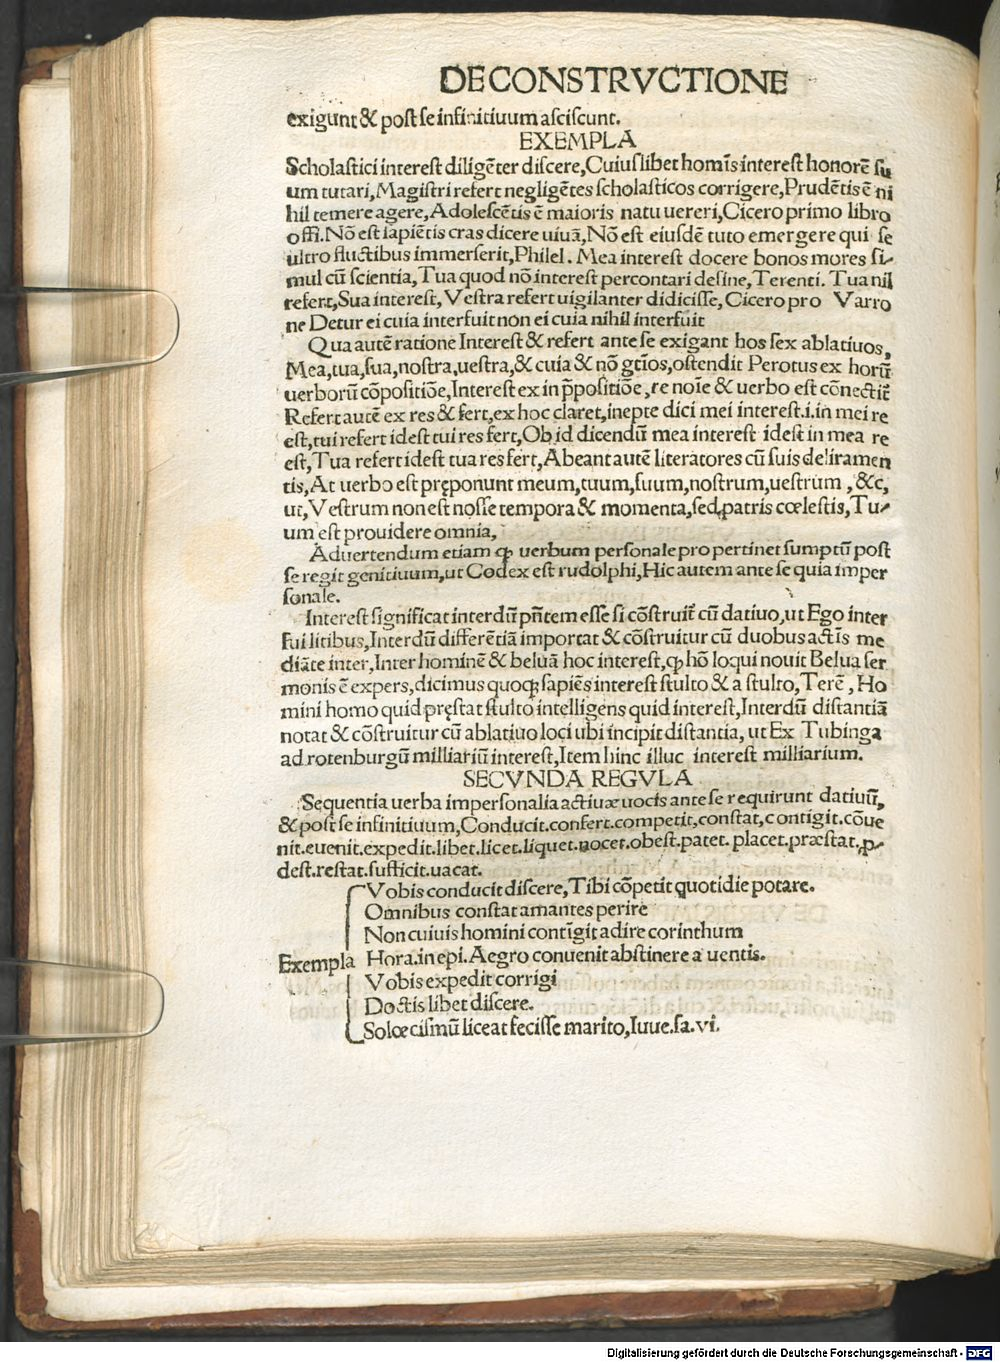 DE CONSTRVCTIONE
exigunt & post se infinitiuum asciscunt.
EXEMPLA
Scholastici interest diligẽter discere, Cuiuslibet homĩs interest honorẽ su
um tutari, Magistri refert negligẽtes scholasticos corrigere, Prudẽtis ẽ ni
hil temere agere, Adolescẽtis ẽ maioris natu uereri, Cicero primo libro
offi. Nõ est sapiẽtis cras dicere uiuã, Nõ est eiusdẽ tuto emergere qui se
ultro fluctibus immerserit, Philel. Mea interest docere bonos mores si-
mul cũ scientia, Tua quod nõ interest percontari desine, Terenti. Tua nil
refert, Sua interest, Vestra refert uigilanter didicisse, Cicero pro Varro
ne Detur ei cuia interfuit non ei cuia nihil interfuit
Qua autẽ ratione Interest & refert ante se exigant hos sex ablatiuos,
Mea, tua, sua, nostra, uestra, & cuia & nõ gtĩos, ostendit Perotus ex horũ
uerborũ cõpositiõe, Interest ex in p̃positiõe, re noĩe & uerbo est cõnectit̃
Refert autẽ ex res & fert, ex hoc claret, inepte dici mei interest .i. in mei re
est, tui refert idest tui res fert, Ob id dicendũ mea interest idest in mea re
est, Tua refert idest tua res fert, Abeant autẽ literatores cũ suis deliramen
tis, At uerbo est pręponunt meum, tuum, suum, nostrum, uestrum, &c,
ut, Vestrum non est nosse tempora & momenta, sed patris cœlestis, Tu-
um est prouidere omnia,
Aduertendum etiam ꝙ uerbum personale pro pertinet sumptũ post
se regit genitiuum, ut Codex est rudolphi, Hic autem ante se quia imper
sonale.
Interest significat interdũ pñtem esse si cõstruit̃ cũ datiuo, ut Ego inter
fui litibus, Interdũ differẽtiã importat & cõstruitur cũ duobus actĩs me
diãte inter, Inter hominẽ & beluã hoc interest, ꝙ hõ loqui nouit Belua ser
monis ẽ expers, dicimus quoqꝫ sapiẽs interest stulto & a stulto, Terẽ, Ho
mini homo quid pręstat stulto intelligens quid interest, Interdũ distantiã
notat & cõstruitur cũ ablatiuo loci ubi incipit distantia, ut Ex Tubinga
ad rotenburgũ milliariũ interest, Item hinc illuc interest milliarium.
SECVNDA REGVLA
Sequentia uerba impersonalia actiuæ uocis ante se requirunt datiuũ,
& post se infinitiuum, Conducit. confert. competit, constat, contigit. cõue
nit. euenit. expedit. libet. licet. liquet. nocet. obest. patet. placet. præstat, ꝓ-
dest. restat. sufficit. uacat.
Vobis conducit discere, Tibi cõpetit quotidie potare.
Omnibus constat amantes perire
Non cuiuis homini contĩgit adire corinthum
Exempla Hora. in epi. Aegro conuenit abstinere a uentis.
Vobis expedit corrigi
Doctis libet discere.
Solœcismũ liceat fecisse marito, Iuue. sa. vi.
Digitalisierung gefördert durch die Deutsche Forschungsgemeinschaft - DFG